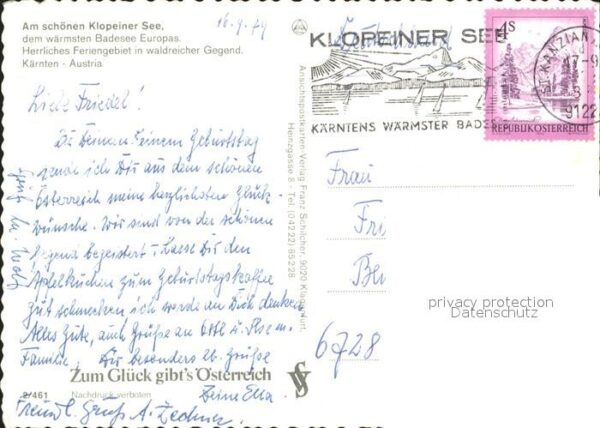 Am schönen Klopeiner See,
dem wärmsten Badesee Europas.
Herrliches Feriengebiet in waldreicher Gegend.
Kärnten - Austria
16.9.79
Liebe Friedel!
Zu Deinem Geburtstag
sende ich Dir aus dem schönen
Österreich meine herzlichsten Glück-
wünsche. Wir sind von der schönen
Gegend begeistert. Lasse Dir den
Apfelkuchen zum Geburtstagskaffee
gut schmecken ich werde an Dich denken
Alles Gute, auch Grüße an u. Ilse m.
Familie. Dir besonders lb. Grüße
Deine Ella
Zum Glück gibt's Österreich
2/461 Nachdruck verboten
Freundl. Gruß A. Zechner
Ansichtspostkarten-Verlag Franz Schilcher, 9020 Klagenfurt,
Heinzgasse 8 - Tel. (04222) 85228
KLOPEINER SEE
KÄRNTENS WÄRMSTER BADE
4S
REPUBLIK ÖSTERREICH
ST. KANZIAN
9122
Frau
Fri
6728
privacy protection
Datenschutz